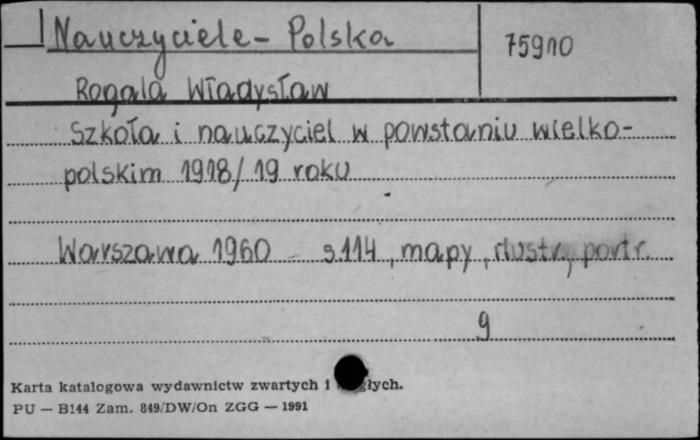 Nauczyciele - Polska
75910
Rogala Władysław
Szkoła i nauczyciel w powstaniu wielko-
polskim 1918/19 roku
Warszawa 1960 - s.114, mapy, ilustr., portr.
9
Karta katalogowa wydawnictw zwartych i głych.
PU — B144 Zam. 849/DW/On ZGG — 1991